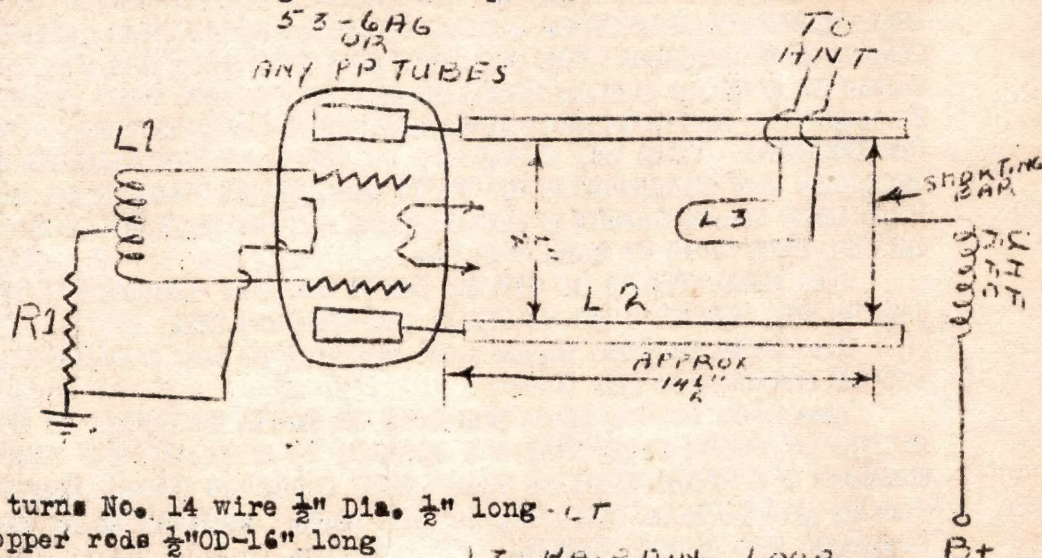 53-6A6
OR
ANY PP TUBES
TO
ANT
L1
SHORTING
BAR
L3
L2
R1
APPROX
14½"
B+
turns No. 14 wire ½" Dia. ½" long - CT
opper rods ½"OD-16" long
L3 HAIRPIN LOOP